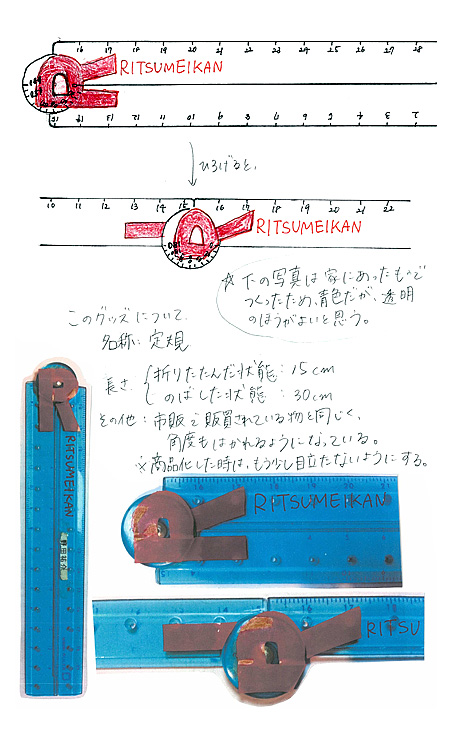 16 17 18 19 20 21 22 23 24 25 26 27 28
RITSUMEIKAN
ひろげると、
10 11 12 13 14 15 16 17 18 19 20 21 22
RITSUMEIKAN
☆下の写真は家にあったもので
つくったため、青色だが、透明
のほうがよいと思う。
このグッズについて
名称：定規
長さ 折りたたんだ状態：15cm
のばした状態：30cm
その他：市販で販買されている物と同じく、
角度もはかれるようになっている。
※商品化した時は、もう少し目立たないようにする。
RITSUMEIKAN
RITSUMEIKAN
RITSU